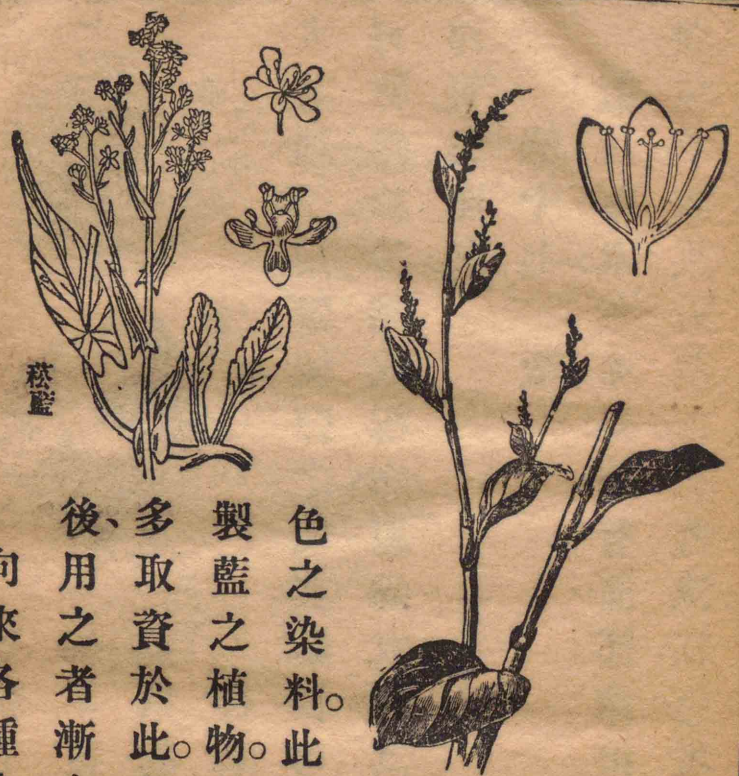 菘藍
色之染料。此
製藍之植物。
多取資於此。
後、用之者漸
向來各種